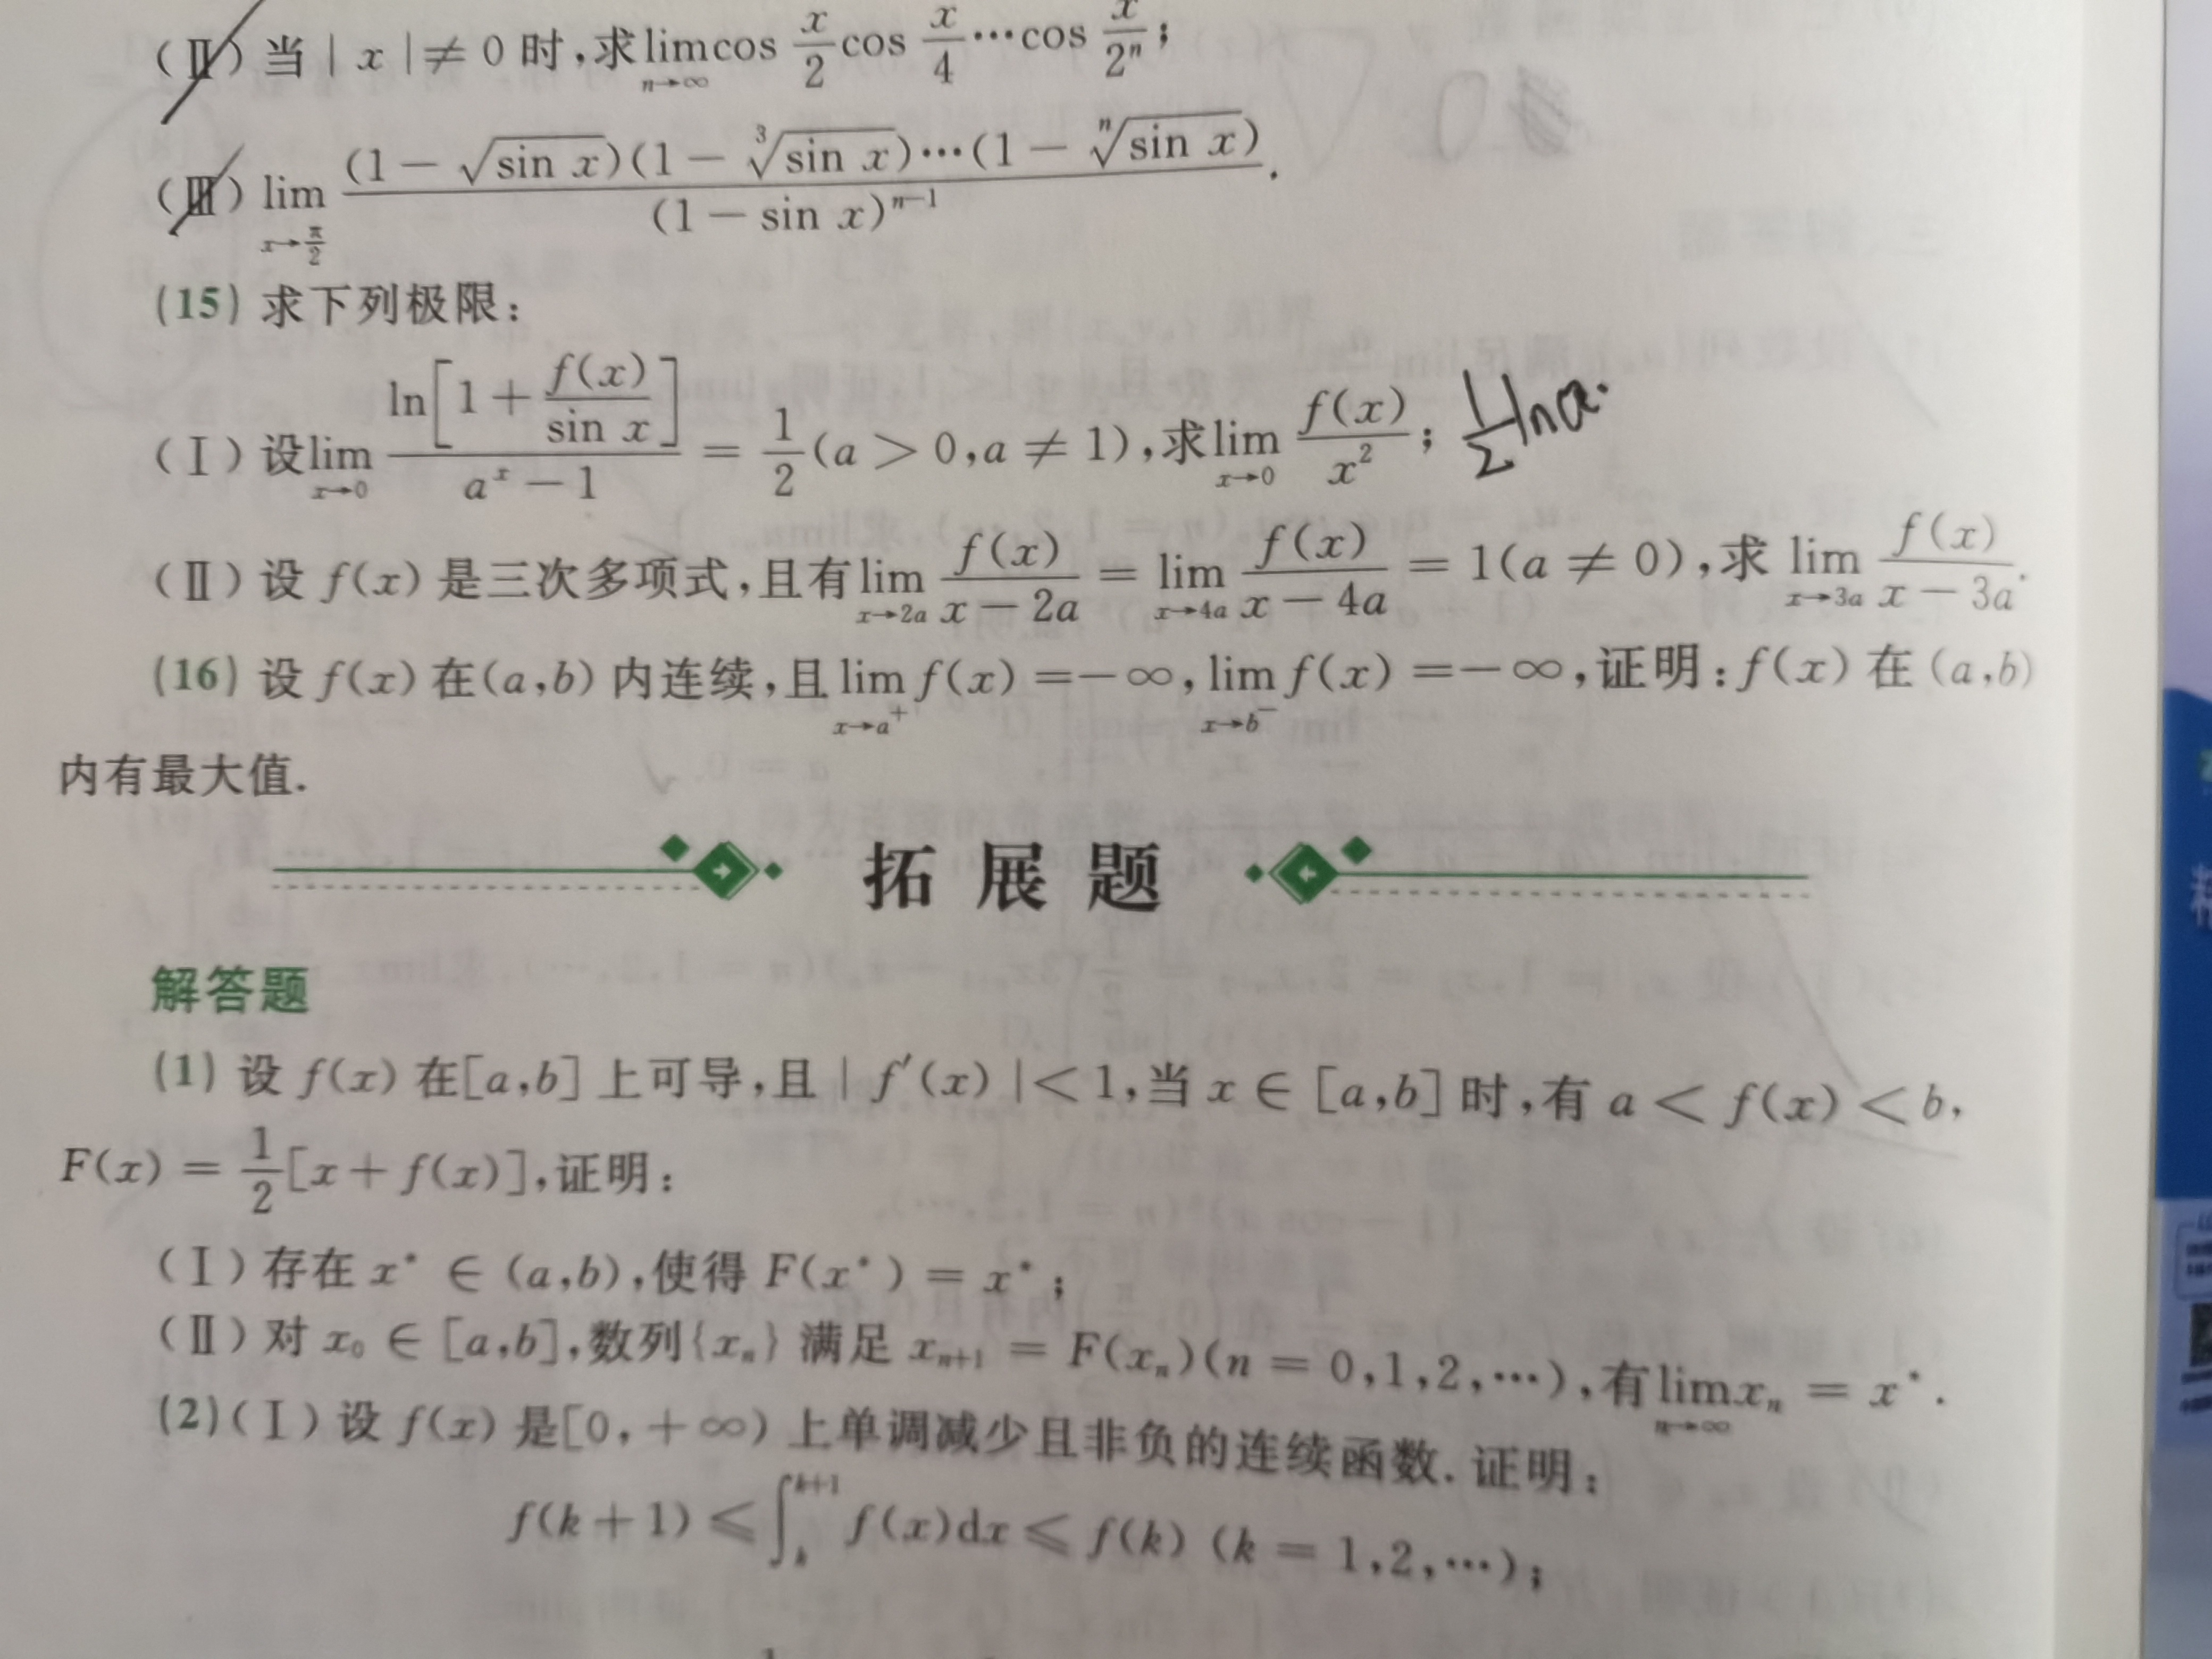 (Ⅱ) 当 | x | ≠ 0 时,求 lim_{n→∞} cos x/2 cos x/4 ⋯ cos x/2ⁿ;
(Ⅲ) lim_{x→π/2} (1 − √(sin x))(1 − ∛(sin x))⋯(1 − ⁿ√(sin x)) / (1 − sin x)ⁿ⁻¹.
(15) 求下列极限:
(Ⅰ) 设 lim_{x→0} ln[1 + f(x)/sin x] / (aˣ − 1) = 1/2 (a > 0, a ≠ 1),求 lim_{x→0} f(x)/x²; 1/2 ln a.
(Ⅱ) 设 f(x) 是三次多项式,且有 lim_{x→2a} f(x)/(x − 2a) = lim_{x→4a} f(x)/(x − 4a) = 1(a ≠ 0),求 lim_{x→3a} f(x)/(x − 3a).
(16) 设 f(x) 在(a,b) 内连续,且 lim_{x→a⁺} f(x) = −∞, lim_{x→b⁻} f(x) = −∞,证明:f(x) 在 (a,b)
内有最大值.
拓展题
解答题
(1) 设 f(x) 在[a,b] 上可导,且 | f′(x) | < 1,当 x ∈ [a,b] 时,有 a < f(x) < b,
F(x) = 1/2 [x + f(x)],证明:
(Ⅰ) 存在 x* ∈ (a,b),使得 F(x*) = x*;
(Ⅱ) 对 x₀ ∈ [a,b],数列{xₙ} 满足 xₙ₊₁ = F(xₙ)(n = 0,1,2,⋯),有 lim_{n→∞} xₙ = x*.
(2)(Ⅰ) 设 f(x) 是[0, +∞) 上单调减少且非负的连续函数. 证明:
f(k+1) ⩽ ∫_k^{k+1} f(x)dx ⩽ f(k) (k = 1,2,⋯);